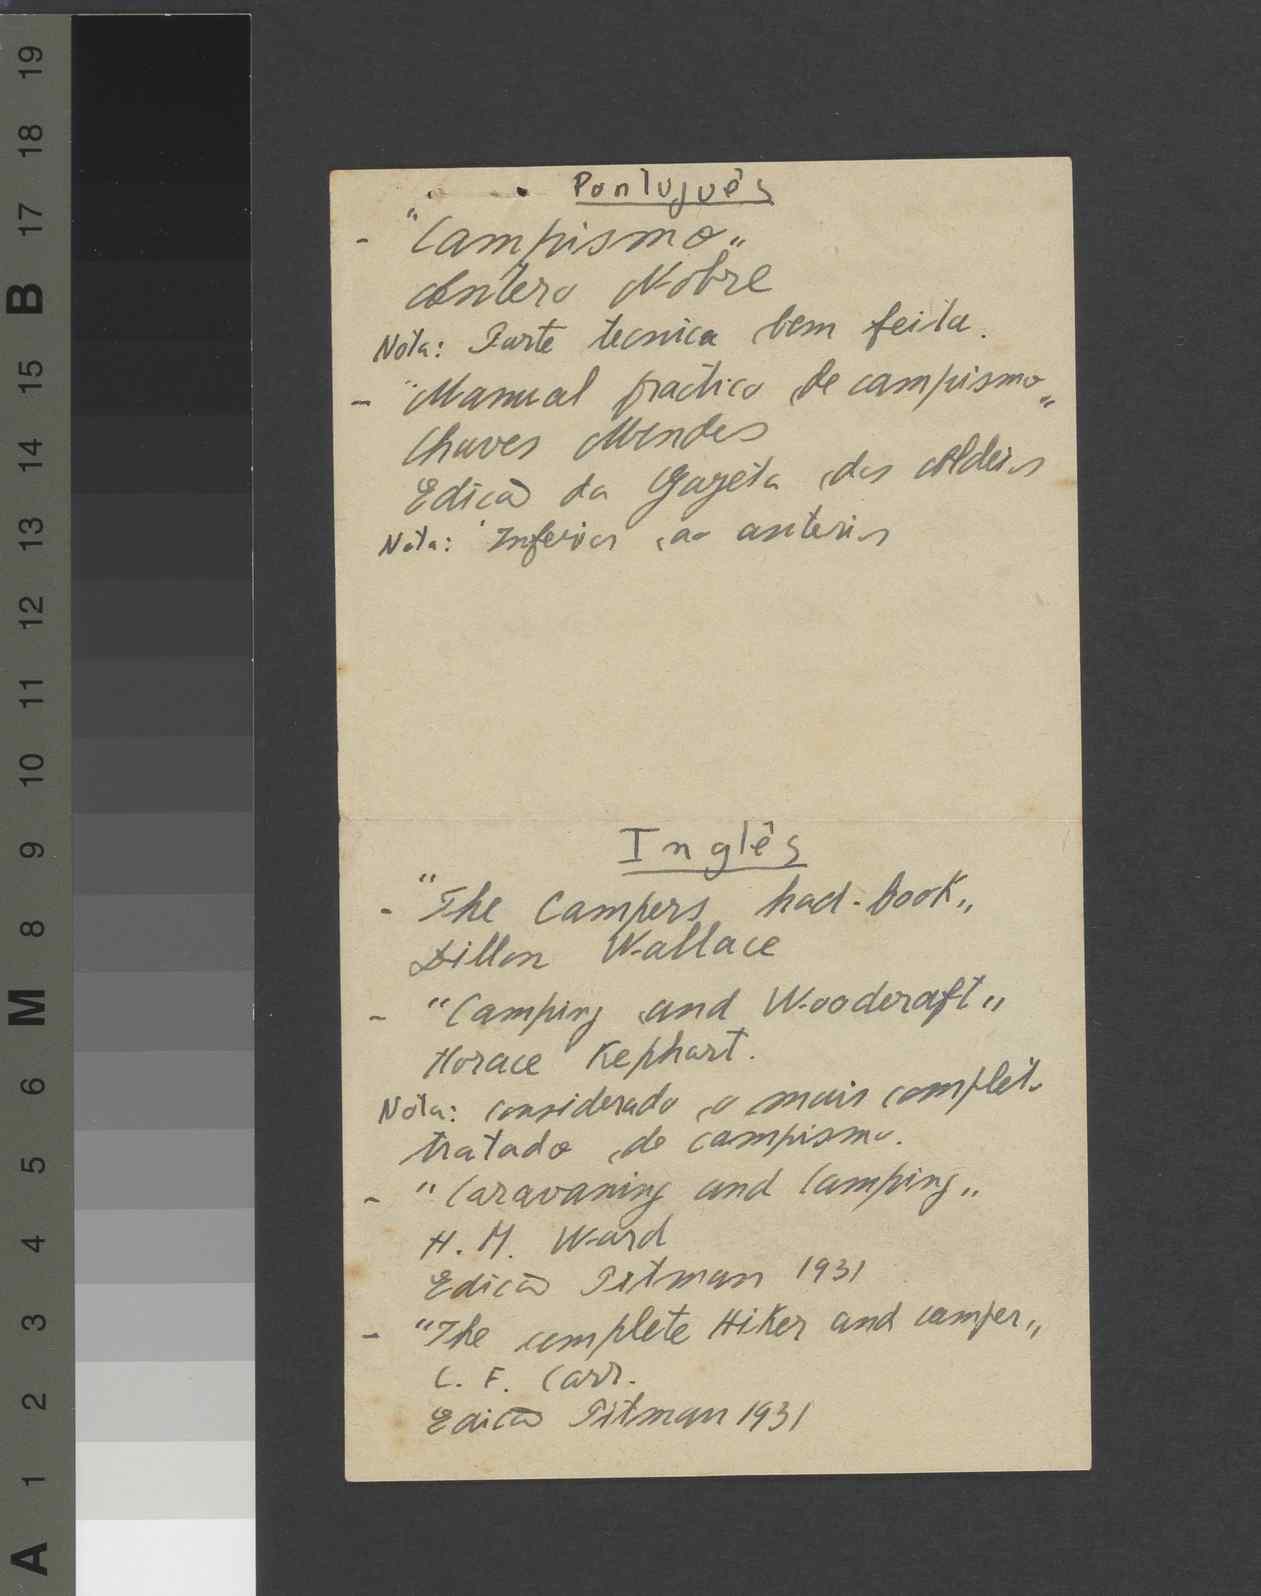 Português
- "Campismo"
Antero Nobre
Nota: Parte tecnica bem feita.
- "Manual practico de campismo"
Chaves Mendes
Edição da Gazeta das Aldeias
Nota: Inferior ao anterior
Inglês
- "The Campers had-book"
Dillon Wallace
- "Camping and Woodcraft"
Horace Kephart.
Nota: considerado o mais completo
tratado de campismo.
- "Caravaning and Camping"
H. M. Ward
Edição Pitman 1931
- "The complete Hiker and camper"
C. F. Carr.
Edição Pitman 1931
A 1 2 3 4 5 6 M 8 9 10 11 12 13 14 15 B 17 18 19